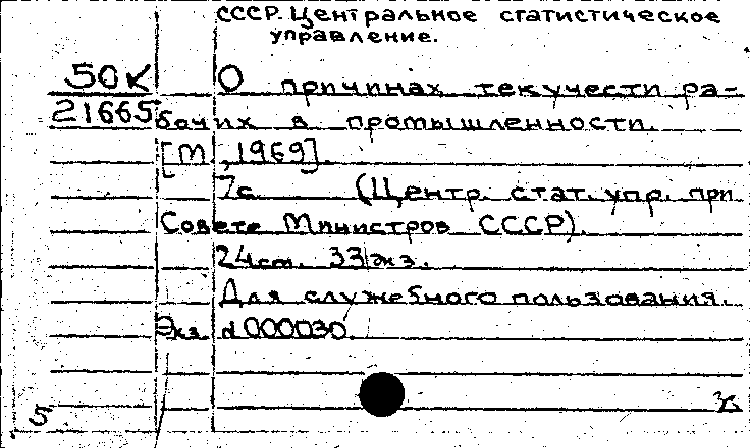 СССР. Центральное статистическое
управление.
50К О причинах текучести ра-
21665 бочих в промышленности.
[М, 1969].
7с (Центр. стат. упр. при
Совете Министров СССР).
24см. 33 экз.
Для служебного пользования.
Экз. №000030.
5